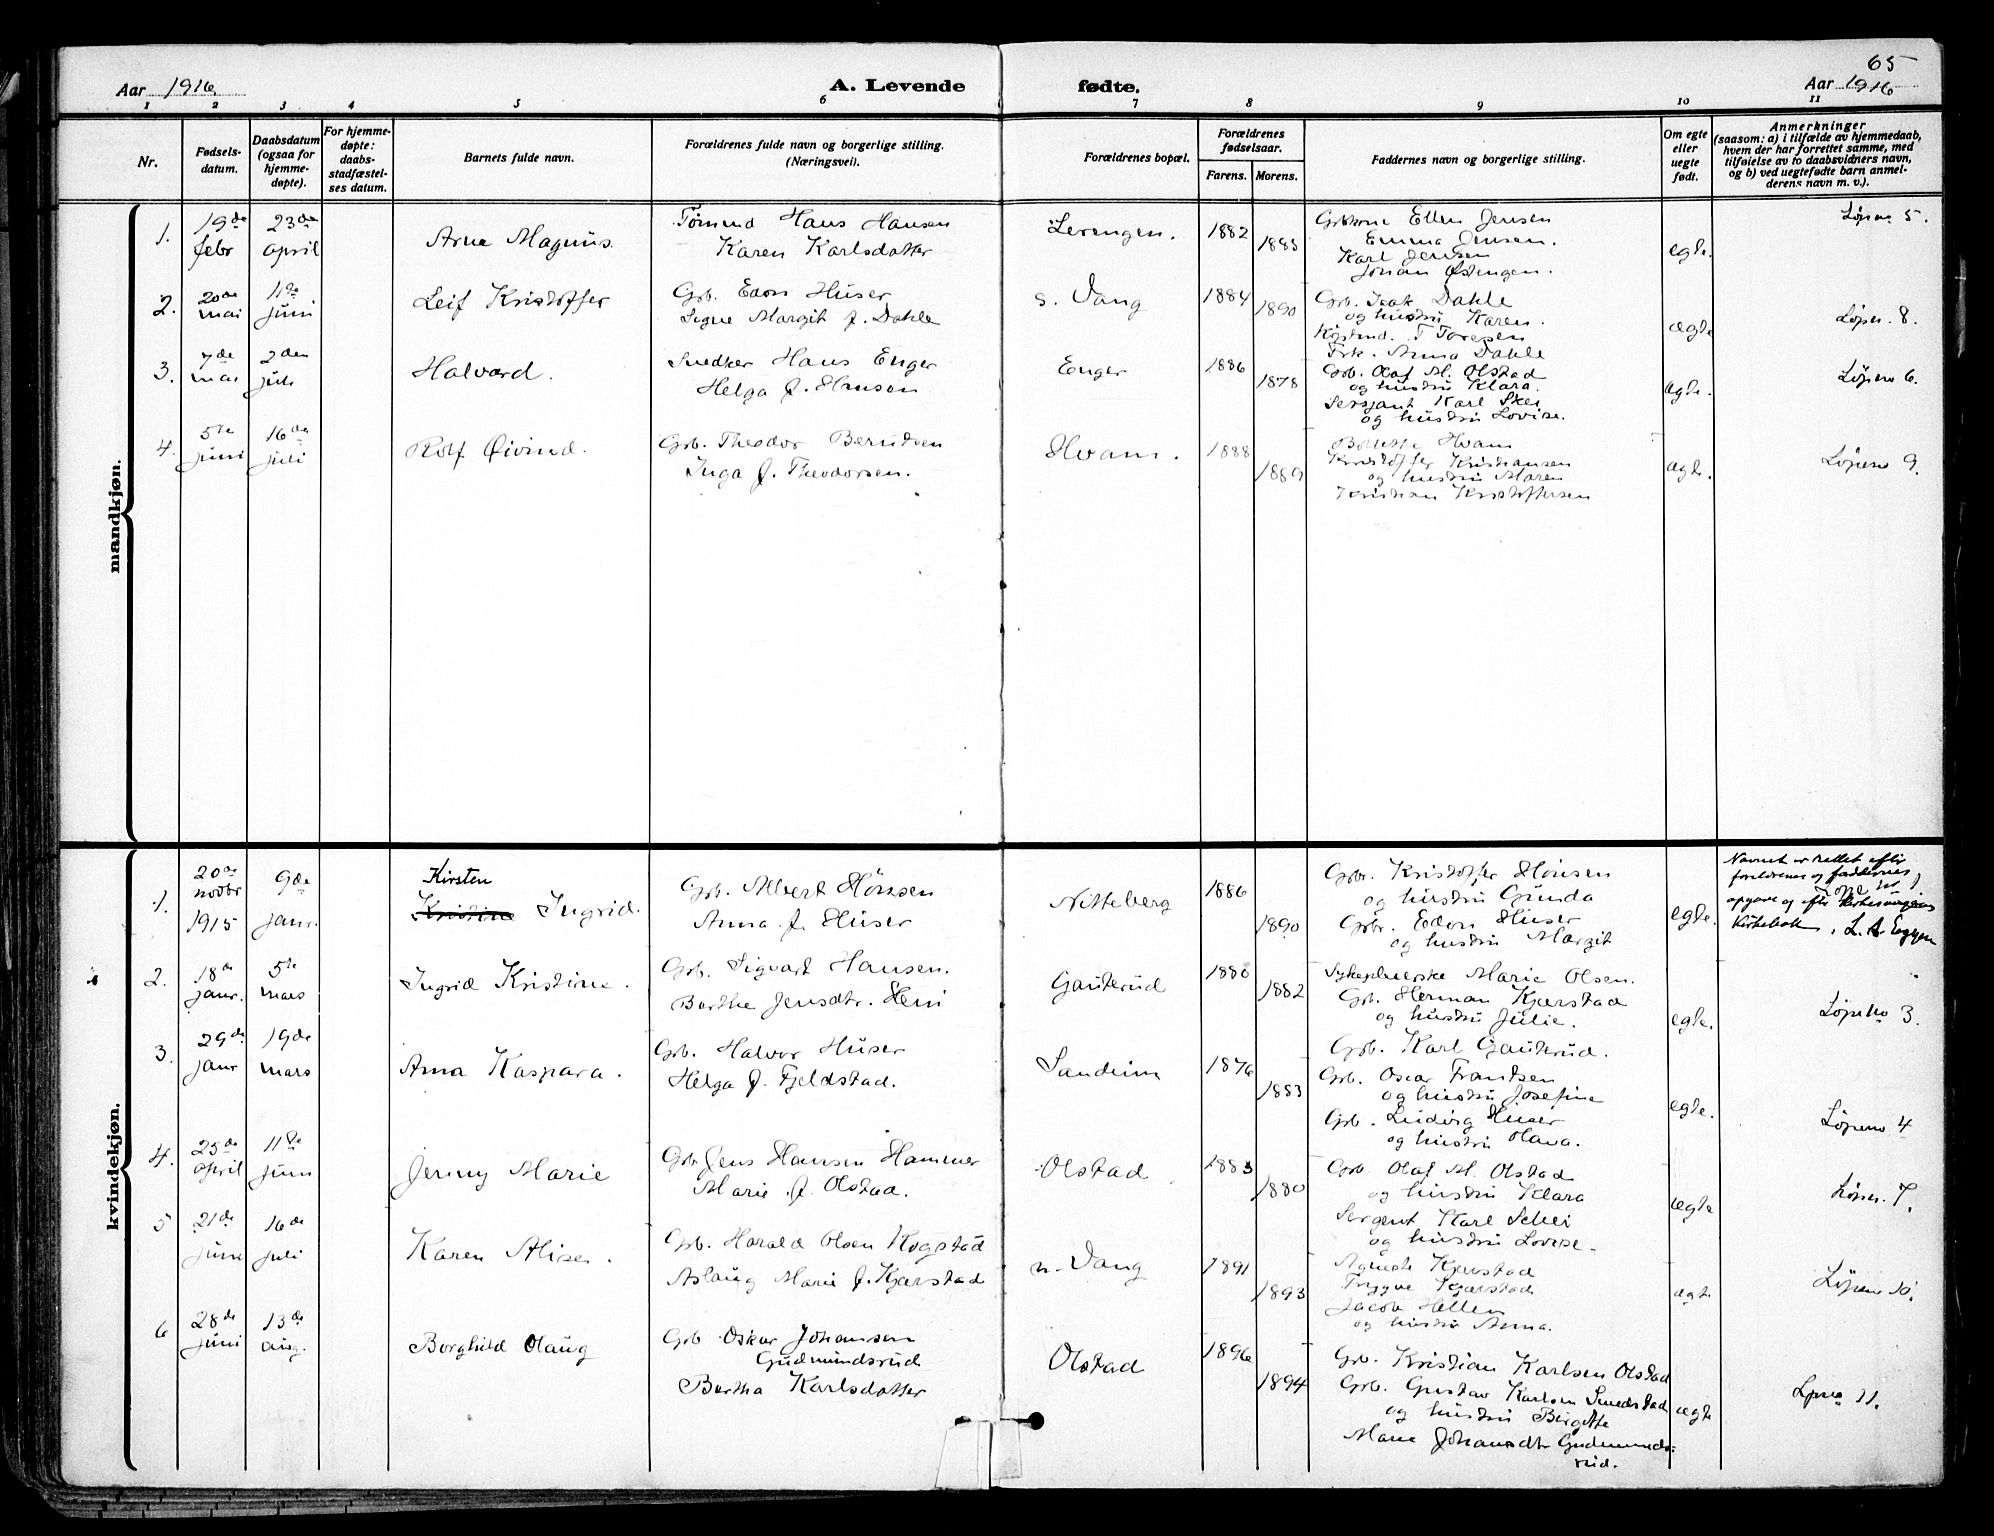 65
Aar 1916 A. Levende fødte. Aar 1916
1 2 3 4 5 6 7 8 9 10 11
Nr.
Fødsels-
datum.
Daabsdatum
(ogsaa for
hjemme-
døpte).
For hjemme-
døpte:
daabs-
stadfæstel-
ses datum.
Barnets fulde navn.
Forældrenes fulde navn og borgerlige stilling.
(Næringsvei).
Forældrenes bopæl.
Forældrenes
fødselsaar.
Farens. Morens.
Faddernes navn og borgerlige stilling.
Om egte
eller
uegte
født.
Anmerkninger
(saasom: a) i tilfælde av hjemmedaab,
hvem der har forrettet samme, med
tilføielse av to daabsvidners navn,
og b) ved uegtefødte barn anmel-
derens navn m. v.).
mandkjøn.
1.
19de
febr
23de
april
Arne Magnus.
Tømmd Hans Hansen
Karen Karlsdatter
Lerengen.
1882
1885
Ellen Jensen
Emma Jensen.
Karl Jensen
Johan Østengen.
egte.
Løpeno 5.
2.
20de
mai
11te
juni
Leif Kristoffer
Grb. Edon Huser
Signe Margit f. Dahle
s. Vang
1884
1890
Grb. Isak Dahle
og hustru Karen.
Kjøbmd. T Toresen
Frk. Anna Dahle
ægte
Løpen. 8.
3.
7de
mai
2den
juli
Halvard.
Snedker Hans Enger
Helga f. Hansen
Enger
1886
1878
Grb. Olaf M. Olstad
og hustru Klara.
Sersjant Karl Skei
og hustru Lovise.
ægte.
Løpeno 6.
4.
5te
juni
16de
juli
Rolf Øivind.
Grb. Theodor Berntsen
Inga f. Theodorsen.
Hvam.
1888
1889
Bolette Hvam
Kristoffer Kristiansen
og hustru Maren
Kristian Kristoffersen
ægte.
Løpeno 9.
kvindekjøn.
1.
20de
novbr
1915
9de
janr.
Kirsten
Kristine Ingrid.
Grb. Albert Hönsen
Anna f. Huser
Nitteberg
1886
1890
Grbr. Kristoffer Hönsen
og hustru Gunda
Grbr. Edon Huser
og hustru Margit
egte.
Navnet er rettet efter
foreldrenes og faddernes
opgave og efter
Kirkebok. L. A. Eggen
2.
18de
janr.
5te
mars
Ingrid Kristine.
Grb. Sigvart Hansen.
Berthe Jensdtr. Heni
Gauterud
1880
1882
Sykepleierske Marie Olsen.
Grb. Herman Kjærstad
og hustru Julie.
Grb. Karl Gauterud.
egte.
Løpeno 3.
3.
29de
janr
19de
mars
Anna Kaspara.
Grb. Halvor Huser
Helga f. Fjeldstad.
Sandum
1876
1883
Grb. Oscar Frantsen
og hustru Josefine
Grb. Ludvig Huser
og hustru Olava.
egte.
Løpeno 4
4.
25de
april
11te
juni
Jenny Marie
Grb Jens Hansen Hammer
Marie f. Olstad.
Olstad
1883
1880
Grb. Olaf M. Olstad
og hustru Klara
Sergent Karl Schei
og hustru Lovise.
ægte
Løpen. 7.
5
21de
juni
16de
juli
Karen Alise.
Grb. Harald Olsen Kogstad
Aslaug Marie f. Kjærstad
n. Vang
1891
1893
Agnete Kjærstad
Trygve Kjærstad
Jacob Hellen
og hustru Anna.
ægte
Løpeno 10.
6
28de
juni
13de
aug.
Borghild Olaug
Grb Oskar Johansen
Gudmundsrud
Bertha Karlsdatter
Olstad
1896
1894
Grb. Kristian Karlsen Olstad
Grb. Gustav Karlsen Smedstad
og hustru Birgitte
Marie Johansdtr Gudmunds-
rud.
ægte
Løpeno 11.